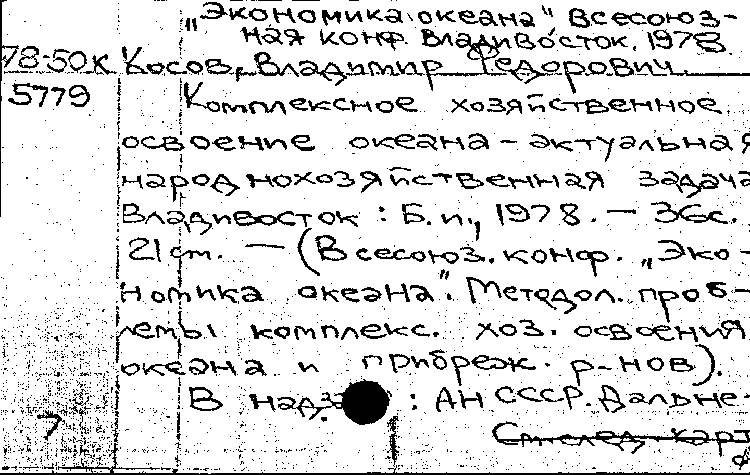 „Экономика океана" Всесоюз-
ная конф. Владивосток. 1978
78-50к Косов, Владимир Федорович.
5779 Комплексное хозяйственное
освоение океана - актуальная
народнохозяйственная задача
Владивосток : Б.и., 1978. — 36с.
21 см. — (Всесоюз. конф. „Эко-
номика океана". Методол. проб-
лемы комплекс. хоз. освоения
океана и прибреж. р-нов).
В надз : АН СССР. Дальне-
7 См. след. карт